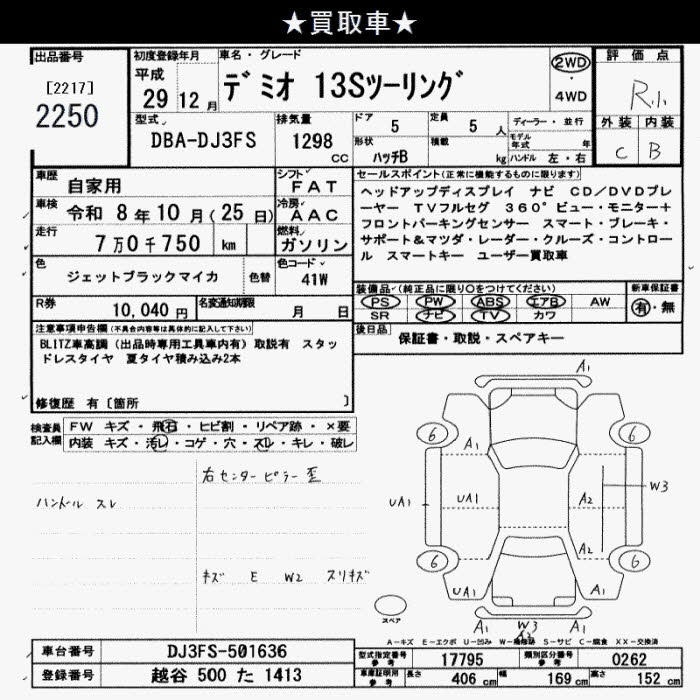 ★買取車★
出品番号
[2217]
2250
初度登録年月
平成
29年12月
車名・グレード
デミオ 13Sツーリング
2WD
・
4WD
評価点
R1
外装 内装
C B
型式
DBA-DJ3FS
排気量
1298
CC
ドア
5
定員
5 人
形状
ハッチB
積載
kg
ディーラー・並行
モデル年式 年
ハンドル 左・右
車歴
自家用
シフト
FAT
車検
令和 8年10月(25日)
冷房
AAC
走行
7万0千750 km
燃料
ガソリン
色
ジェットブラックマイカ
色替
色コード
41W
R券
10,040円
名変通知期限
月 日
セールスポイント(正常に機能するものに限ります)
ヘッドアップディスプレイ ナビ CD/DVDプレ
ーヤー TVフルセグ 360°ビュー・モニター+
フロントパーキングセンサー スマート・ブレーキ・
サポート&マツダ・レーダー・クルーズ・コントロー
ル スマートキー ユーザー買取車
装備品(純正品に限り○をつけてください)
PS PW ABS エアB AW
SR ナビ TV カワ
新車保証書
有・無
後日品
保証書・取説・スペアキー
注意事項申告欄(不具合内容等は具体的に記入して下さい)
BLITZ車高調(出品時専用工具車内有)取説有 スタッ
ドレスタイヤ 夏タイヤ積み込み2本
修復歴 有〔箇所 〕
検査員
記入欄
FW キズ・飛石・ヒビ割・リペア跡・×要
内装 キズ・汚レ・コゲ・穴・スレ・キレ・破レ
右センターピラー歪
ハンドル スレ
キズ E W2 スリキズ
A1
6
6
A1
A1
UA1
UA1
A2
W3
A2
6
6
UA1
A1
A1
W3
A2
A1
スペア
A-キズ E-エクボ U-凹み W-補修跡 S-サビ C-腐食 XX-交換済
車台番号
DJ3FS-501636
登録番号
越谷 500 た 1413
型式指定番号
参考
17795
類別区分番号
参考
0262
車庫証明用
参考
長さ
406 cm
幅
169 cm
高さ
152 cm